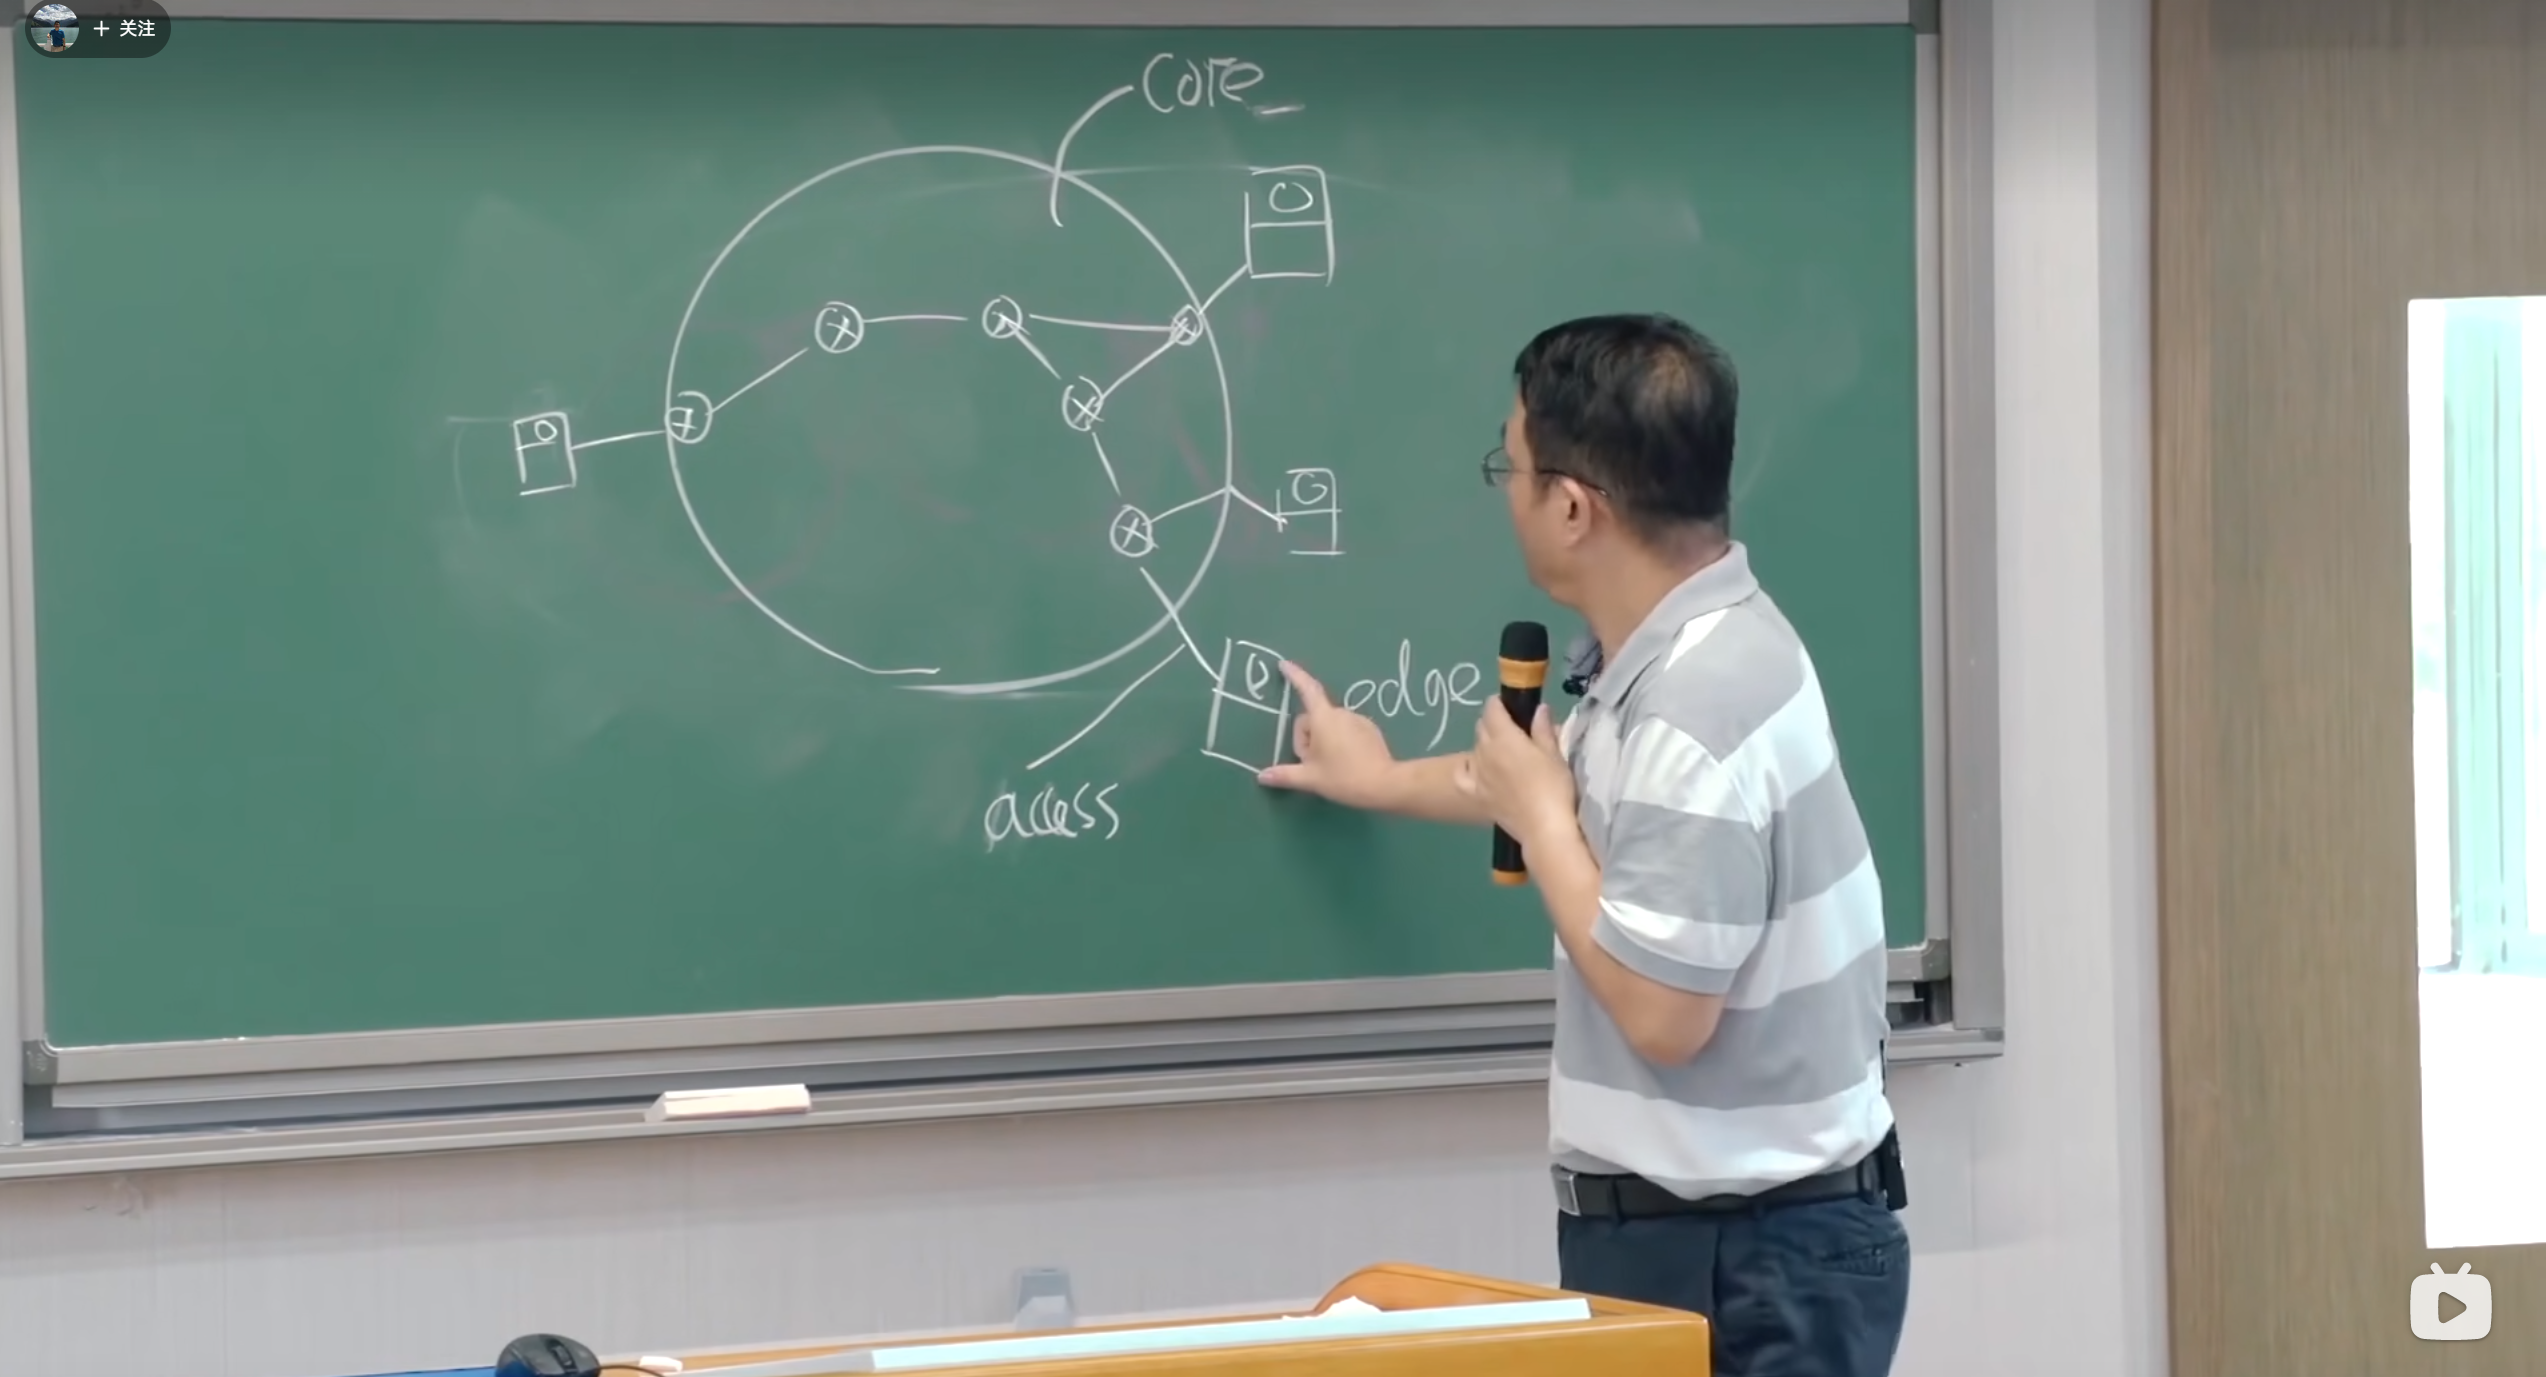 + 关注
Core
edge
access